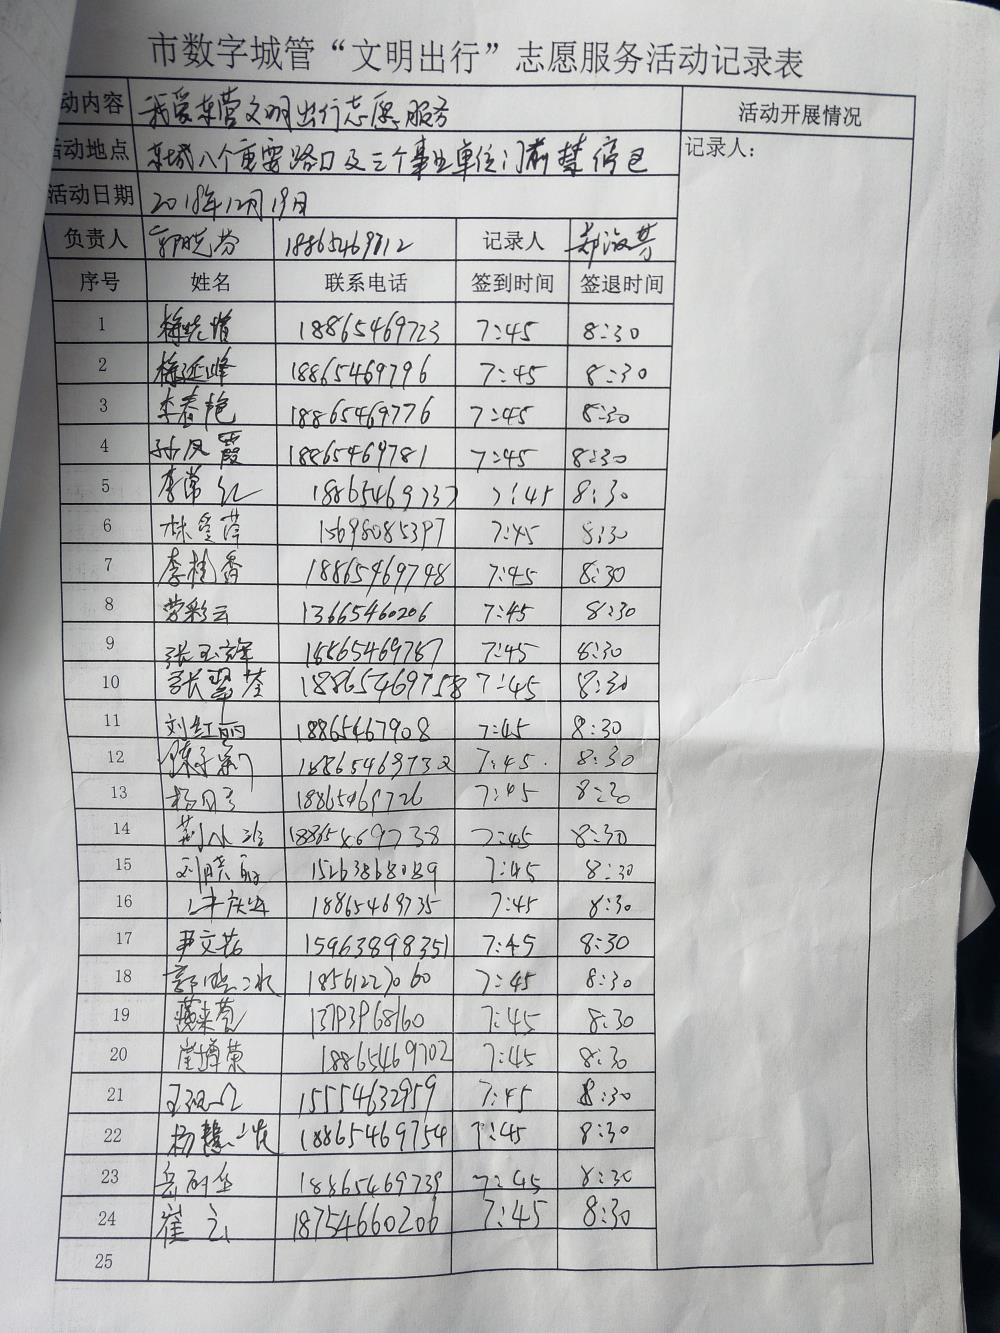 市数字城管“文明出行”志愿服务活动记录表
动内容 我爱东营文明出行志愿服务 活动开展情况
活动地点 东城八个重要路口及三个事业单位门前 记录人：
活动日期 2018年12月19日
负责人 郭晓芬 18865469712 记录人 郑海芳
序号 姓名 联系电话 签到时间 签退时间
1 18865469723 7:45 8:30
2 徐延峰 18865469796 7:45 8:30
3 李春艳 18865469776 7:45 8:30
4 孙凤霞 18865469781 7:45 8:30
5 李常红 18865469737 7:45 8:30
6 15698085397 7:45 8:30
7 李桂香 18865469748 7:45 8:30
8 劳彩云 13665460206 7:45 8:30
9 张玉辉 18865469787 7:45 8:30
10 张翠荃 18865469758 7:45 8:30
11 刘红丽 18865467908 7:45 8:30
12 18865469732 7:45 8:30
13 18865469726 7:45 8:30
14 18865469738 7:45 8:30
15 刘晓丽 15263868089 7:45 8:30
16 18865469735 7:45 8:30
17 尹文茹 15963898351 7:45 8:30
18 18561227060 7:45 8:30
19 13793968160 7:45 8:30
20 18865469702 7:45 8:30
21 15554632959 7:45 8:30
22 18865469754 7:45 8:30
23 18865469739 7:45 8:30
24 崔云 18754660206 7:45 8:30
25